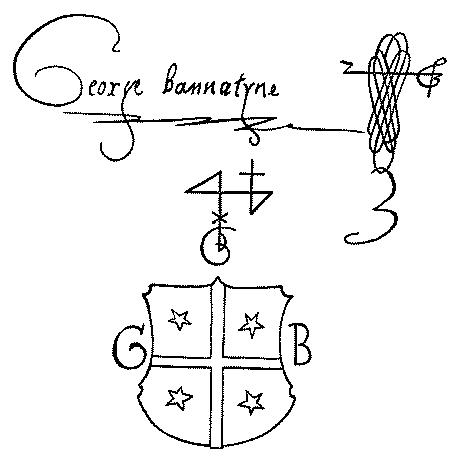 George bannatyne
G B